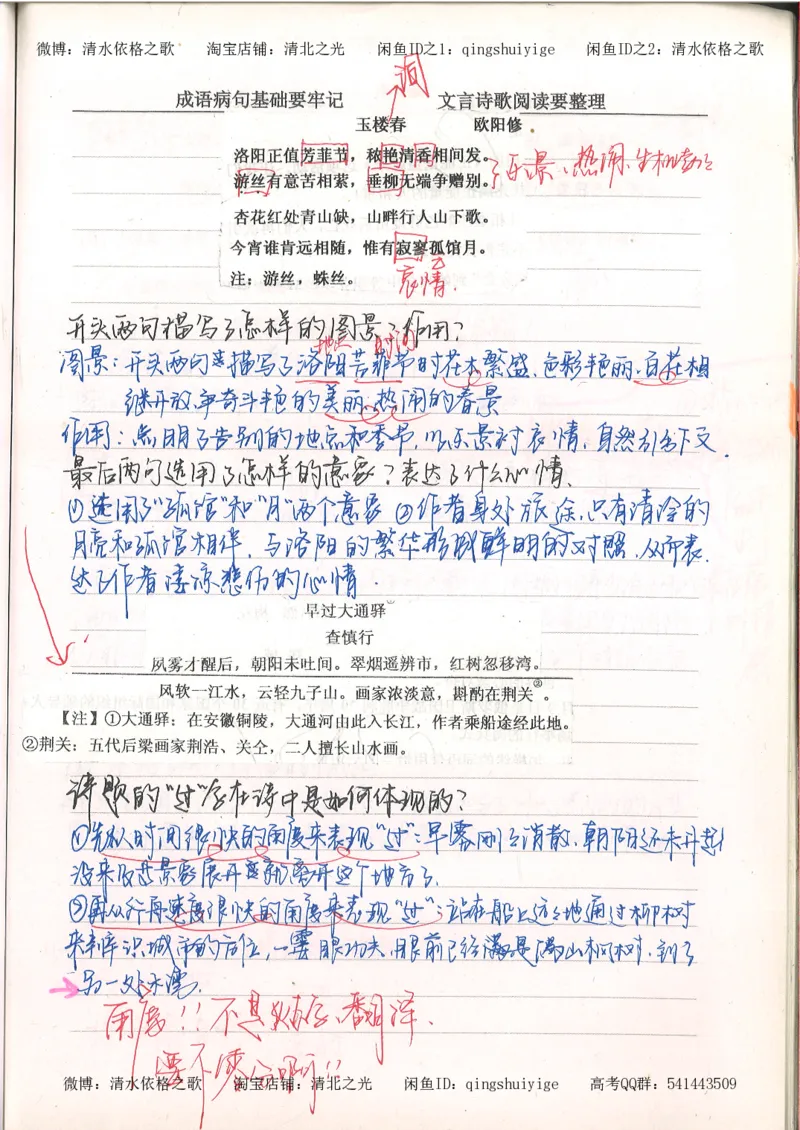 微博：清水依格之歌 淘宝店铺：清北之光 闲鱼ID之1：qingshuiyige 闲鱼ID之2：清水依格之歌
成语病句基础要牢记 文言诗歌阅读要整理
玉楼春 欧阳修
洛阳正值芳菲节，秾艳清香相间发。
游丝有意苦相萦，垂柳无端争赠别。
乐景、热闹、生机勃勃
杏花红处青山缺，山畔行人山下歇。
今宵谁肯远相随，惟有寂寥孤馆月。
注：游丝，蛛丝。
哀情.
开头两句描写了怎样的图景？作用？
地点 时间
图景：开头两句描写了洛阳芳菲节时花木繁盛、色彩艳丽、自花相
继开放、争奇斗艳的美丽、热闹的春景
作用：点明了告别的地点和季节，以乐景衬哀情，自然引出下文.
最后两句选用了怎样的意象？表达了什么心情.
①选用了“孤馆”和“月”两个意象 ②作者身处旅途，只有清冷的
月亮和孤馆相伴，与洛阳的繁华形成鲜明的对照，从而表.
达了作者凄凉悲伤的心情.
早过大通驿
查慎行
夙雾才醒后，朝阳未吐间。翠烟遥辨市，红树忽移湾。
风软一江水，云轻九子山。画家浓淡意，斟酌在荆关②。
【注】①大通驿：在安徽铜陵，大通河由此入长江，作者乘船途经此地。
②荆关：五代后梁画家荆浩、关仝，二人擅长山水画。
诗题的“过”字在诗中是如何体现的？
①先从时间很快的角度来表现“过”：早雾刚刚消散，朝阳还未升起
没来及景象展开就离开这个地方了.
②再从行舟速度很快的角度来表现“过”：站在船上远远地通过柳树
来辨识城市的方位，一霎眼功夫，眼前已经满山树，到了
另一处水湾.
角度！！不是
翻译.
要不零分啊！！
微博：清水依格之歌 淘宝店铺：清北之光 闲鱼ID：qingshuiyige 高考QQ群：541443509